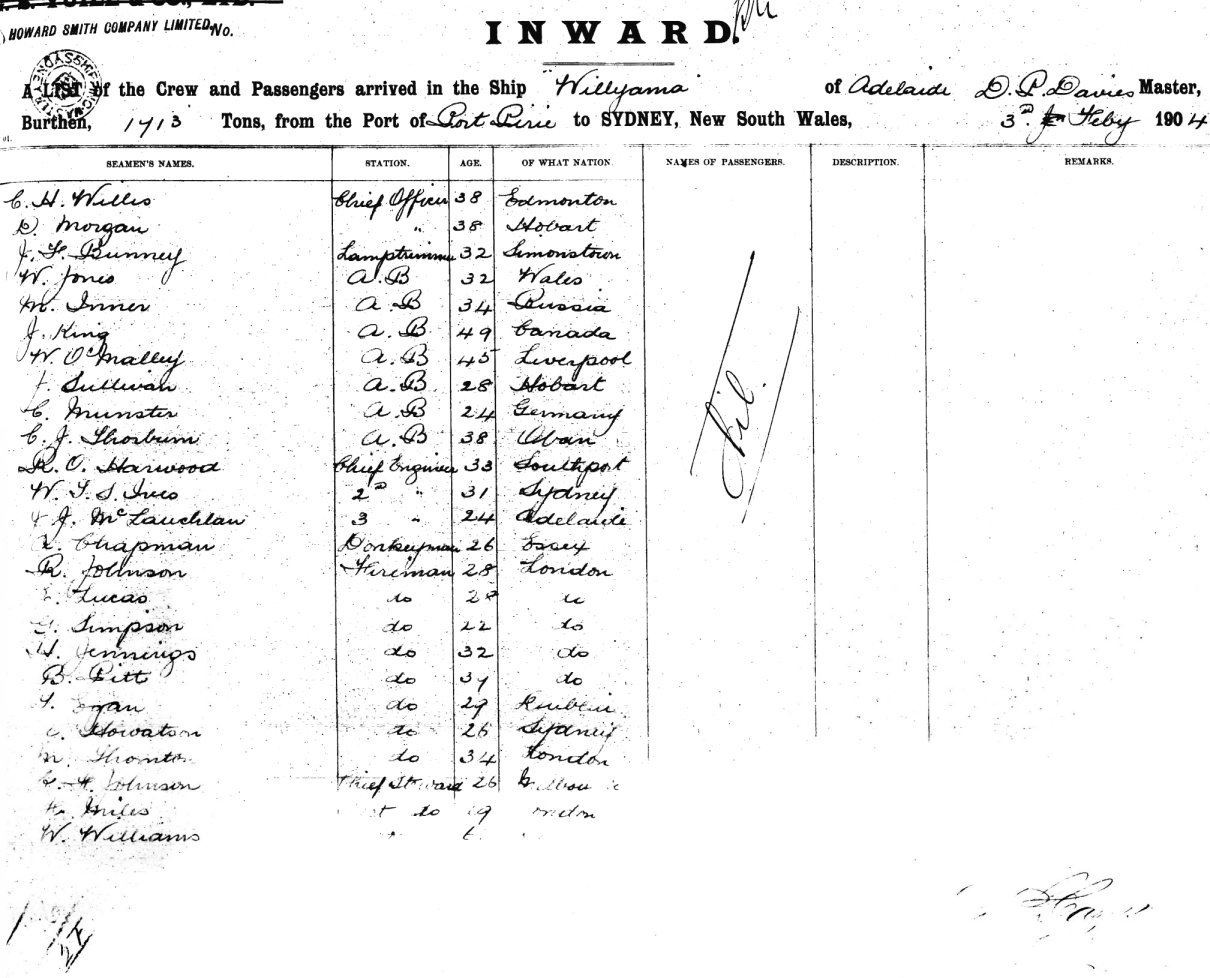 HOWARD SMITH COMPANY LIMITED, No.
INWARD.
A LIST of the Crew and Passengers arrived in the Ship "Willyama" of Adelaide D. P. Davies Master,
Burthen, 1713 Tons, from the Port of Port Pirie to SYDNEY, New South Wales, 3rd Feby 1904
SEAMEN'S NAMES. STATION. AGE. OF WHAT NATION. NAMES OF PASSENGERS. DESCRIPTION. REMARKS.
C. H. Willis Chief Officer 38 Edmonton
D. Morgan " 38 Hobart
J. F. Bunney Lamptrimmer 32 Simonstown
W. Jones A.B 32 Wales
M. Inner A.B 34 Russia
J. King A.B 49 Canada
W. O'Malley A.B 45 Liverpool
J. Sullivan A.B 28 Hobart
C. Munster A.B 24 Germany
C. J. Thorburn A.B 38 Oban
R. O. Harwood Chief Engineer 33 Southport
W. T. S. Ives 2nd " 31 Sydney
J. McLauchlan 3 " 24 Adelaide
Chapman Donkeyman 26 Essex
R. Johnson Fireman 28 London
Lucas do 28 do
G. Simpson do 22 do
H. Jennings do 32 do
B. Pitt do 37 do
T. Egan do 29 Dublin
Howatson do 26 Sydney
M. Thornton do 34 London
Johnson Chief Steward 26
Miles do 19
W. Williams
Nil.